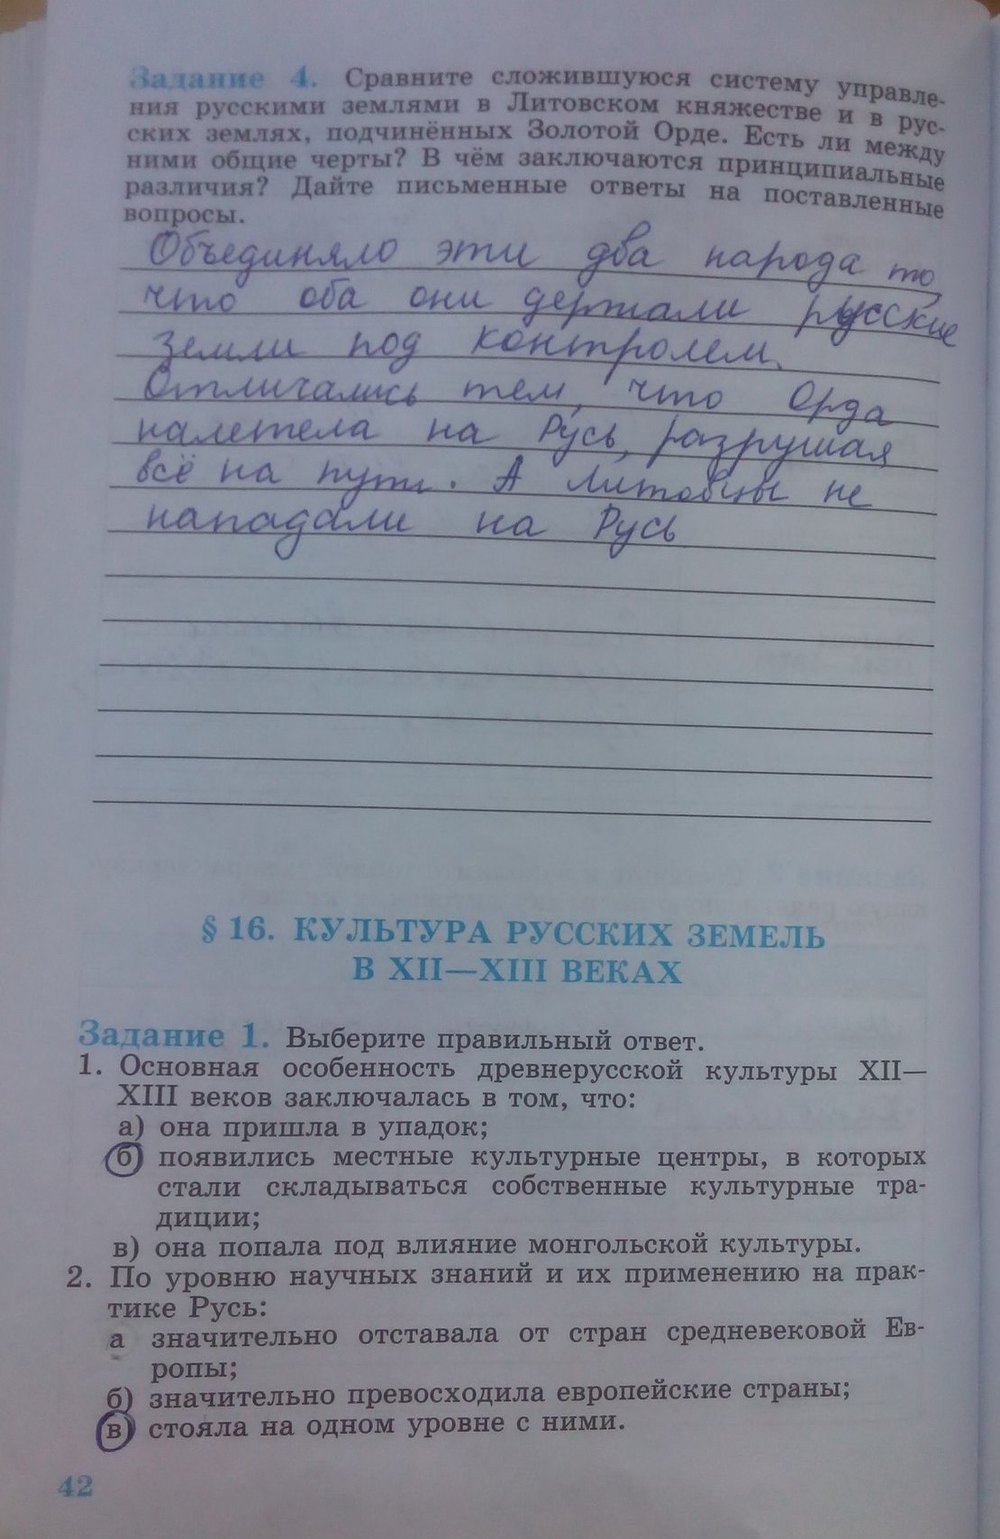 Задание 4. Сравните сложившуюся систему управле-
ния русскими землями в Литовском княжестве и в рус-
ских землях, подчинённых Золотой Орде. Есть ли между
ними общие черты? В чём заключаются принципиальные
различия? Дайте письменные ответы на поставленные
вопросы.
Объединяло эти два народа то,
что оба они держали русские
земли под контролем.
Отличались тем, что Орда
налетела на Русь, разрушая
всё на пути. А Литовцы не
нападали на Русь
§ 16. КУЛЬТУРА РУССКИХ ЗЕМЕЛЬ
В XII—XIII ВЕКАХ
Задание 1. Выберите правильный ответ.
1. Основная особенность древнерусской культуры XII—
XIII веков заключалась в том, что:
а) она пришла в упадок;
б) появились местные культурные центры, в которых
стали складываться собственные культурные тра-
диции;
в) она попала под влияние монгольской культуры.
2. По уровню научных знаний и их применению на прак-
тике Русь:
а значительно отставала от стран средневековой Ев-
ропы;
б) значительно превосходила европейские страны;
в) стояла на одном уровне с ними.
42